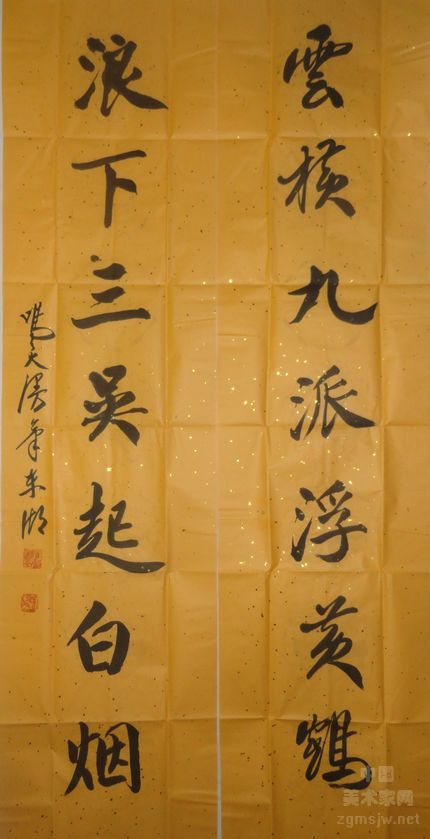 雲橫九派浮黃鶴
浪下三吳起白烟
鳴天漫筆東湖
中国美术家网
zgmsjw.net